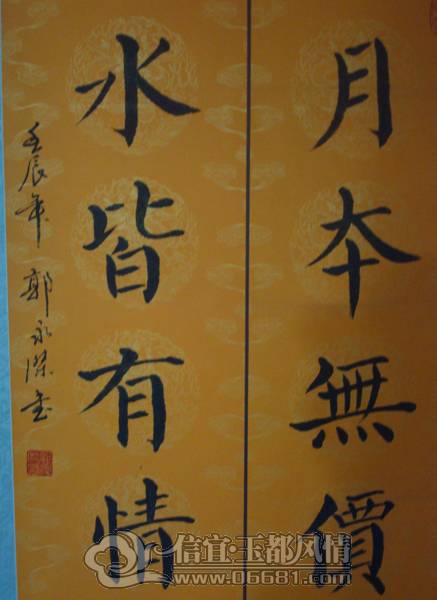 月本無價
水皆有情
壬辰年 郭永傑书
信宜·玉都风情
www.06681.com